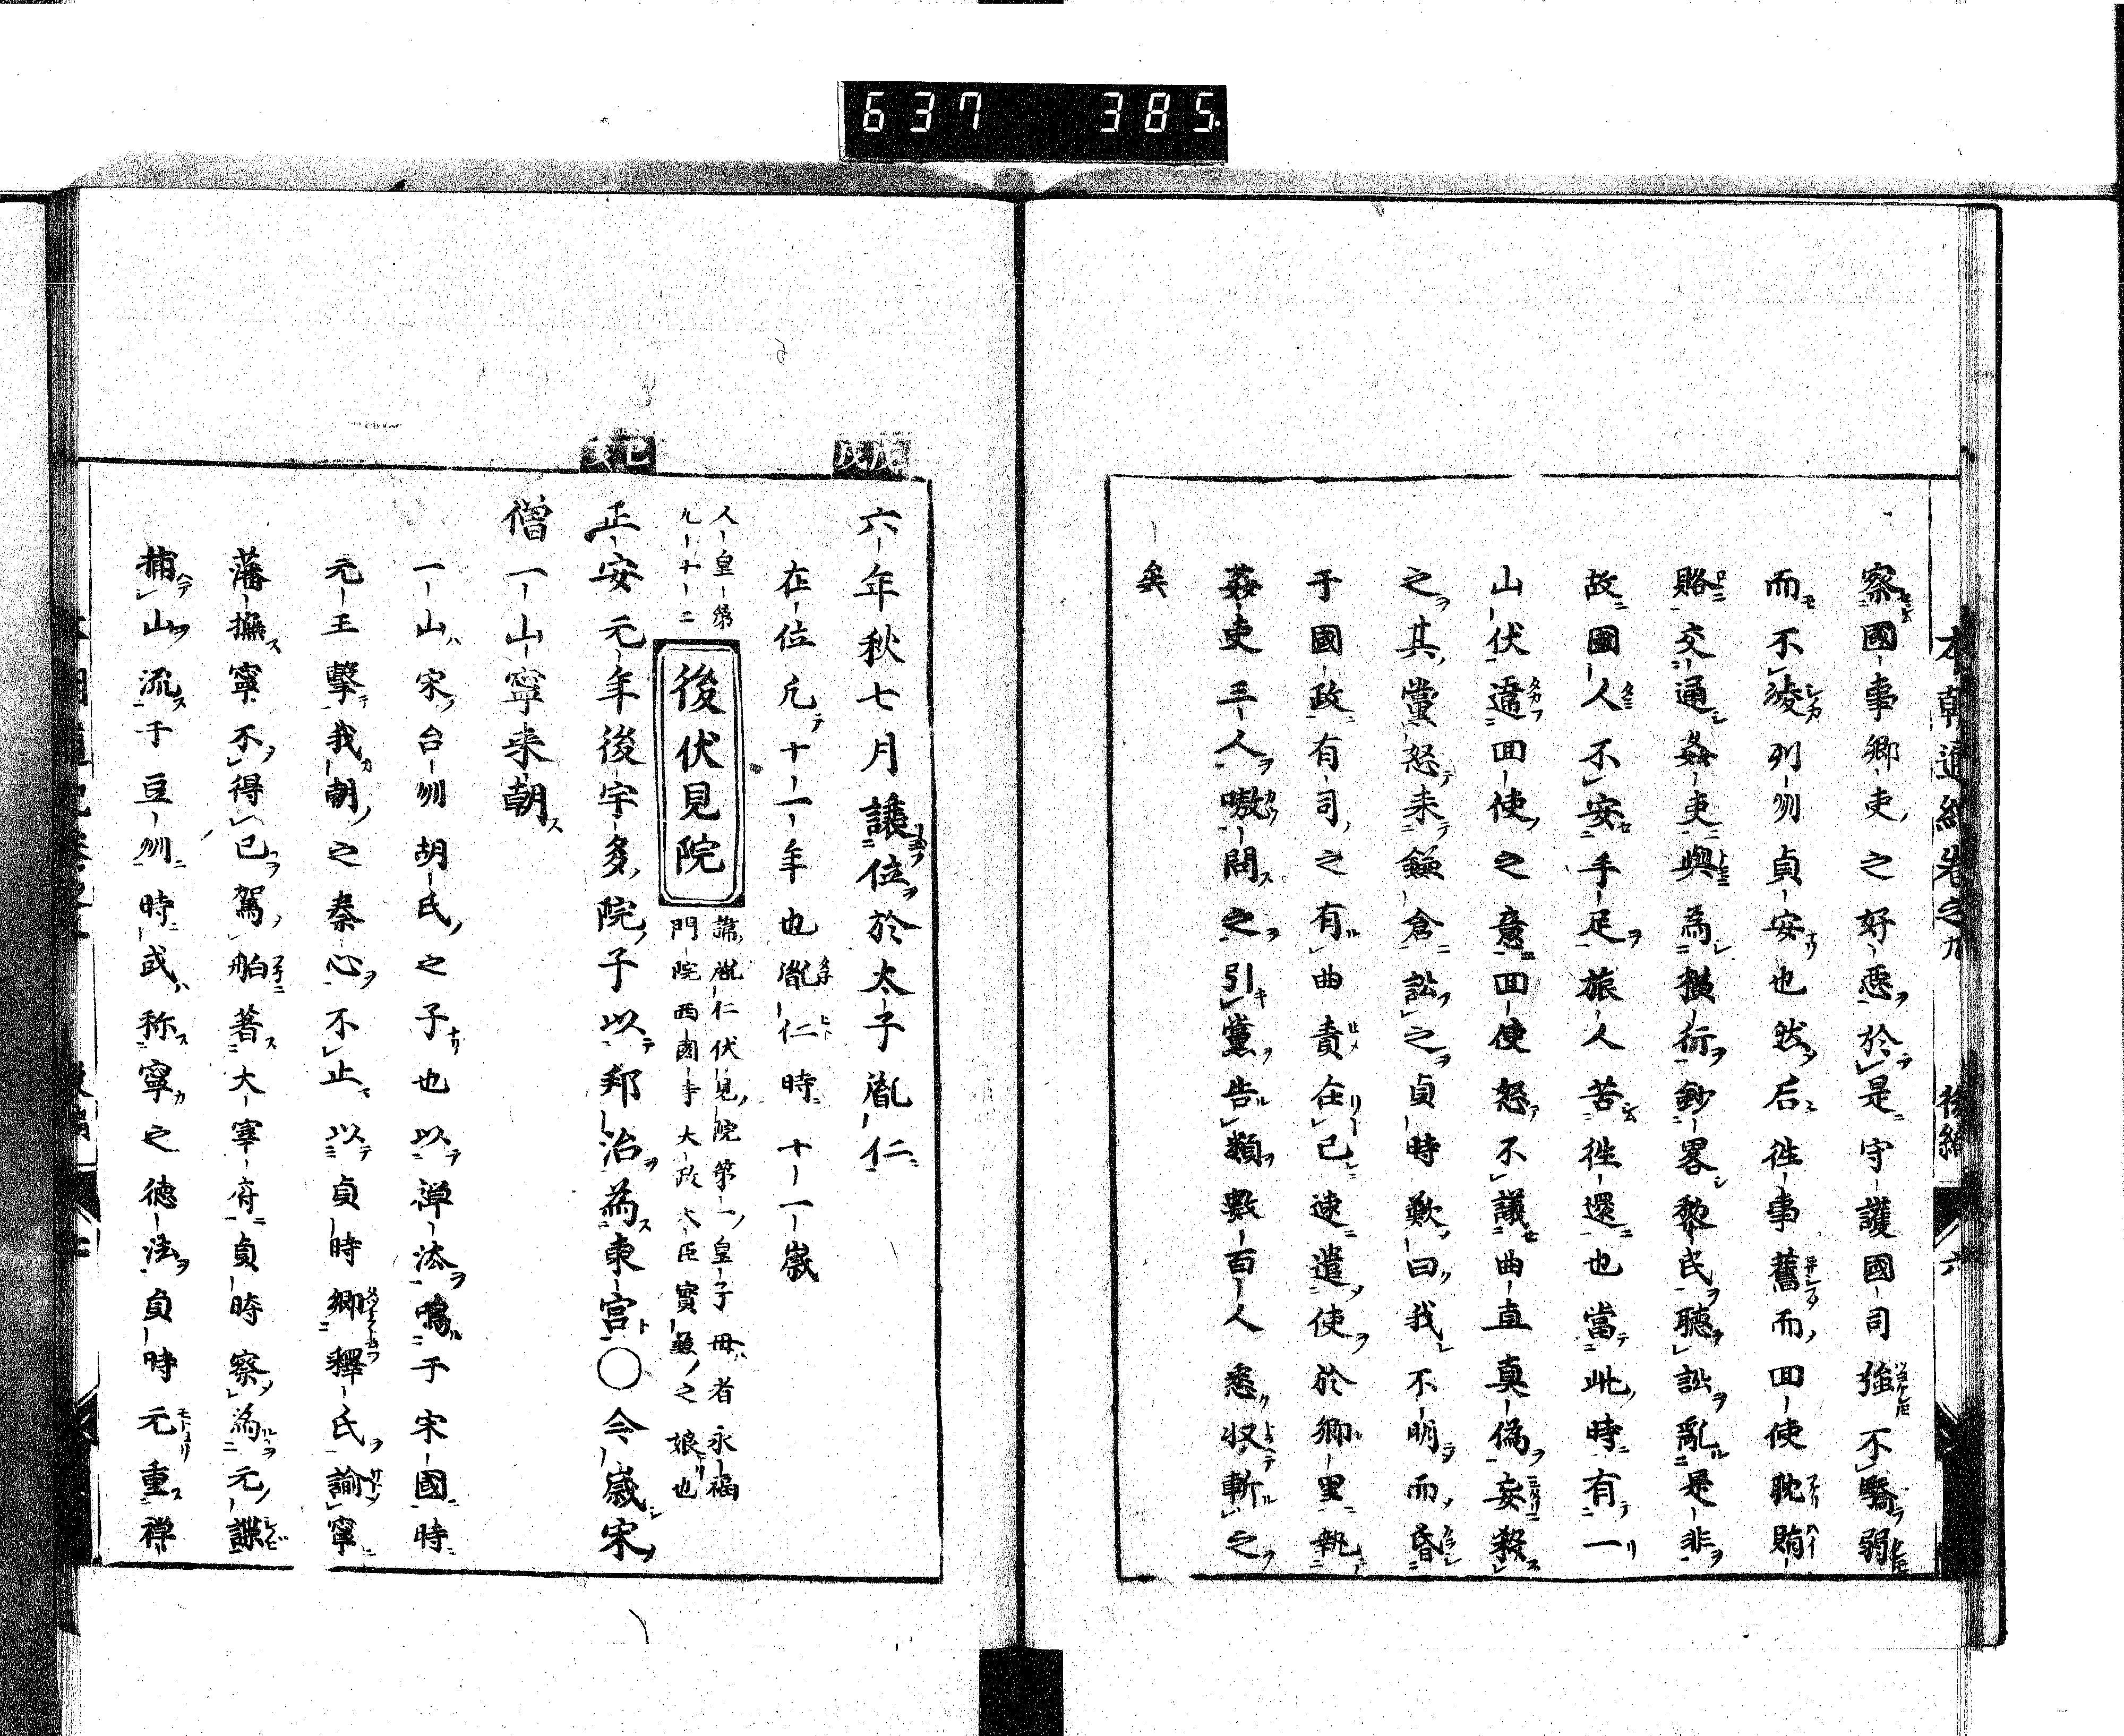 637 385
本朝通紀卷之九 後編 六
察國事鄕吏之好惡於是守護國司強不驕弱
而不凌列州貞安也然后徃事舊而囬使耽賄
賂交通姦吏與為橫行鈔畧黎民聽訟亂是非
故國人不安手足旅人苦徃還也當此時有一
山伏遇囬使之意囬使怒不議曲直真偽妄殺
之其黨怒来鎌倉訟之貞時歎曰我不明而昏
于國政有司之有曲責在己速遣使於鄕里執
姦吏三人嗷問之引黨告類數百人悉収斬之
矣
戊戌
六年秋七月讓位於太子胤仁
在位凡十一年也胤仁時十一歲
人皇第九十二
後伏見院
諱胤仁伏見院第一皇子母者永福
門院西園寺大政大臣實兼之娘也
己亥
正安元年後宇多院子以邦治為東宮〇今歲宋
僧一山寧来朝
一山宋台州胡氏之子也以禅法鳴于宋國時
元王擊我朝之秦心不止以貞時鄕釋氏諭寧
藩撫寧不得已駕舶著大宰府貞時察為元諜
捕山流于豆州時或称寧之徳法貞時元重禅